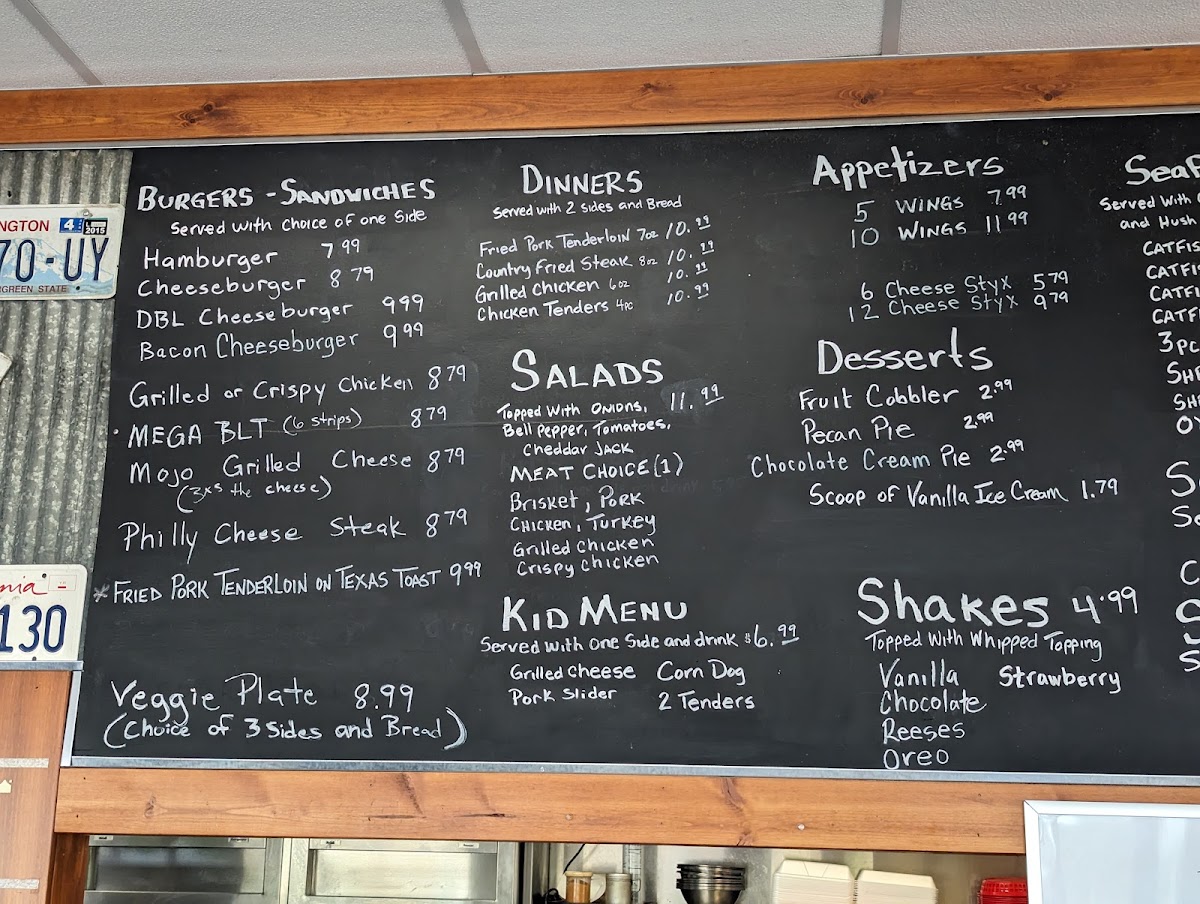 NGTON
4
2015
70-UY
RGREEN STATE
nia
130
BURGERS - SANDWICHES
Served with choice of one side
Hamburger 7.99
Cheeseburger 8 79
DBL Cheeseburger 9 99
Bacon Cheeseburger 9 99
Grilled or Crispy Chicken 8 79
MEGA BLT (6 strips) 8 79
Mojo Grilled Cheese 8 79
(3xs the cheese)
Philly Cheese Steak 8 79
* FRIED PORK TENDERLOIN ON TEXAS TOAST 9 99
Veggie Plate 8.99
(Choice of 3 Sides and Bread)
DINNERS
Served with 2 sides and Bread
Fried Pork Tenderloin 7oz 10.99
Country Fried Steak 8oz 10.99
Grilled Chicken 6oz 10.99
Chicken Tenders 4pc 10.99
SALADS
Topped With Onions, 11.99
Bell Pepper, Tomatoes,
Cheddar JACK
MEAT CHOICE (1)
Brisket, Pork
Chicken, Turkey
Grilled Chicken
Crispy Chicken
KID MENU
Served with One Side and drink $6.99
Grilled Cheese Corn Dog
Pork Slider 2 Tenders
Appetizers
5 WINGS 7.99
10 WINGS 11.99
6 Cheese Styx 5.79
12 Cheese Styx 9.79
Desserts
Fruit Cobbler 2.99
Pecan Pie 2.99
Chocolate Cream Pie 2.99
Scoop of Vanilla Ice Cream 1.79
Shakes 4.99
Topped With Whipped Topping
Vanilla Strawberry
Chocolate
Reeses
Oreo
Seaf
Served with
and Hush
CATFIS
CATFI
CATFI
CATFI
3pc
SHR
SH
OY